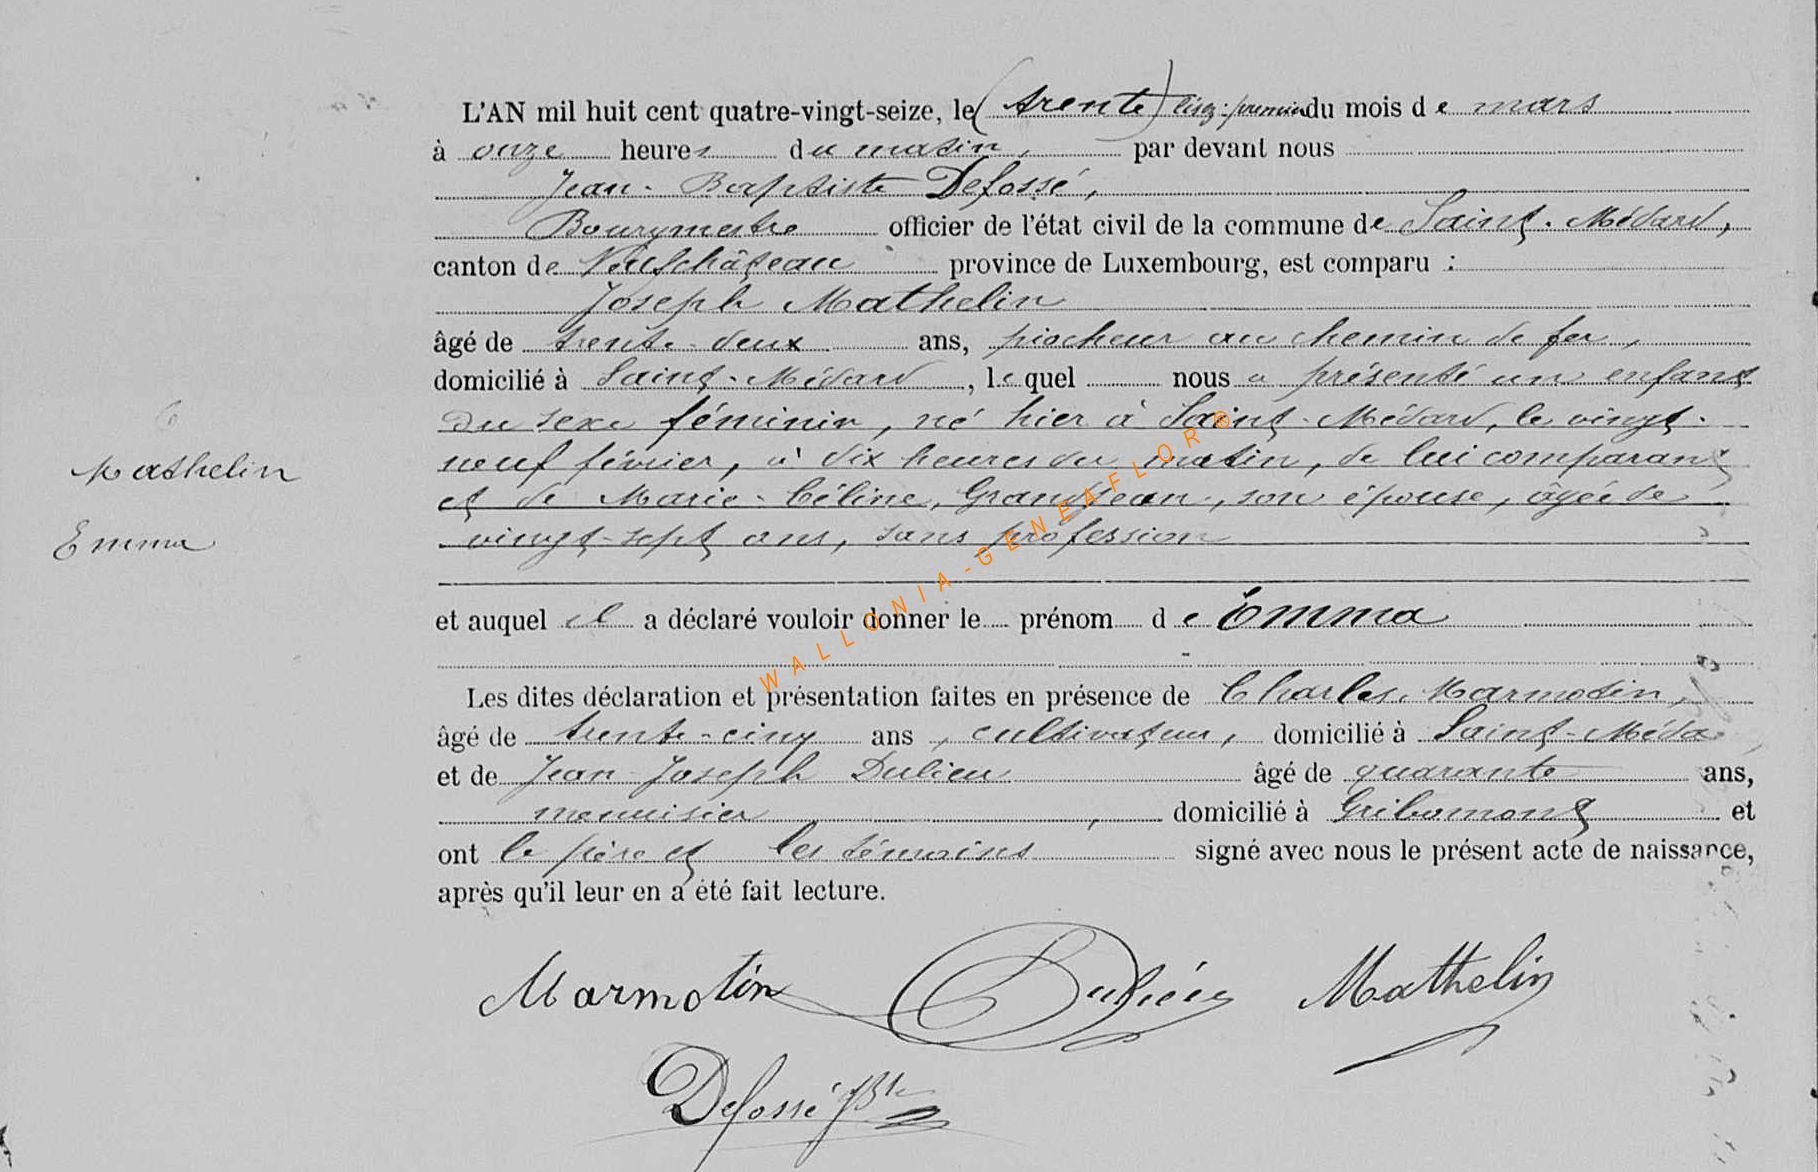 L'AN mil huit cent quatre-vingt-seize, le (trente) lisez: premier du mois de mars
à onze heures du matin, par devant nous
Jean-Baptiste Defossé,
Bourgmestre officier de l'état civil de la commune de Saint-Médard,
canton de Neufchâteau province de Luxembourg, est comparu :
Joseph Mathelin
âgé de trente-deux ans, piocheur au chemin de fer,
domicilié à Saint-Médard, lequel nous a présenté un enfant
du sexe féminin, né hier à Saint-Médard, le vingt-
neuf février, à dix heures du matin, de lui comparant
6
Mathelin
et de Marie-Céline, Grandjean, son épouse, âgée de
Emma
vingt-sept ans, sans profession
et auquel il a déclaré vouloir donner le prénom de Emma
Les dites déclaration et présentation faites en présence de Charles Marmotin,
âgé de trente-cinq ans, cultivateur, domicilié à Saint-Méda
et de Jean-Joseph Dulieu âgé de quarante ans,
menuisier, domicilié à Gribomont et
ont le père et les témoins signé avec nous le présent acte de naissance,
après qu'il leur en a été fait lecture.
Marmotin Mathelin
Defossé JBte
WALLONIA-GENEAFLOR®